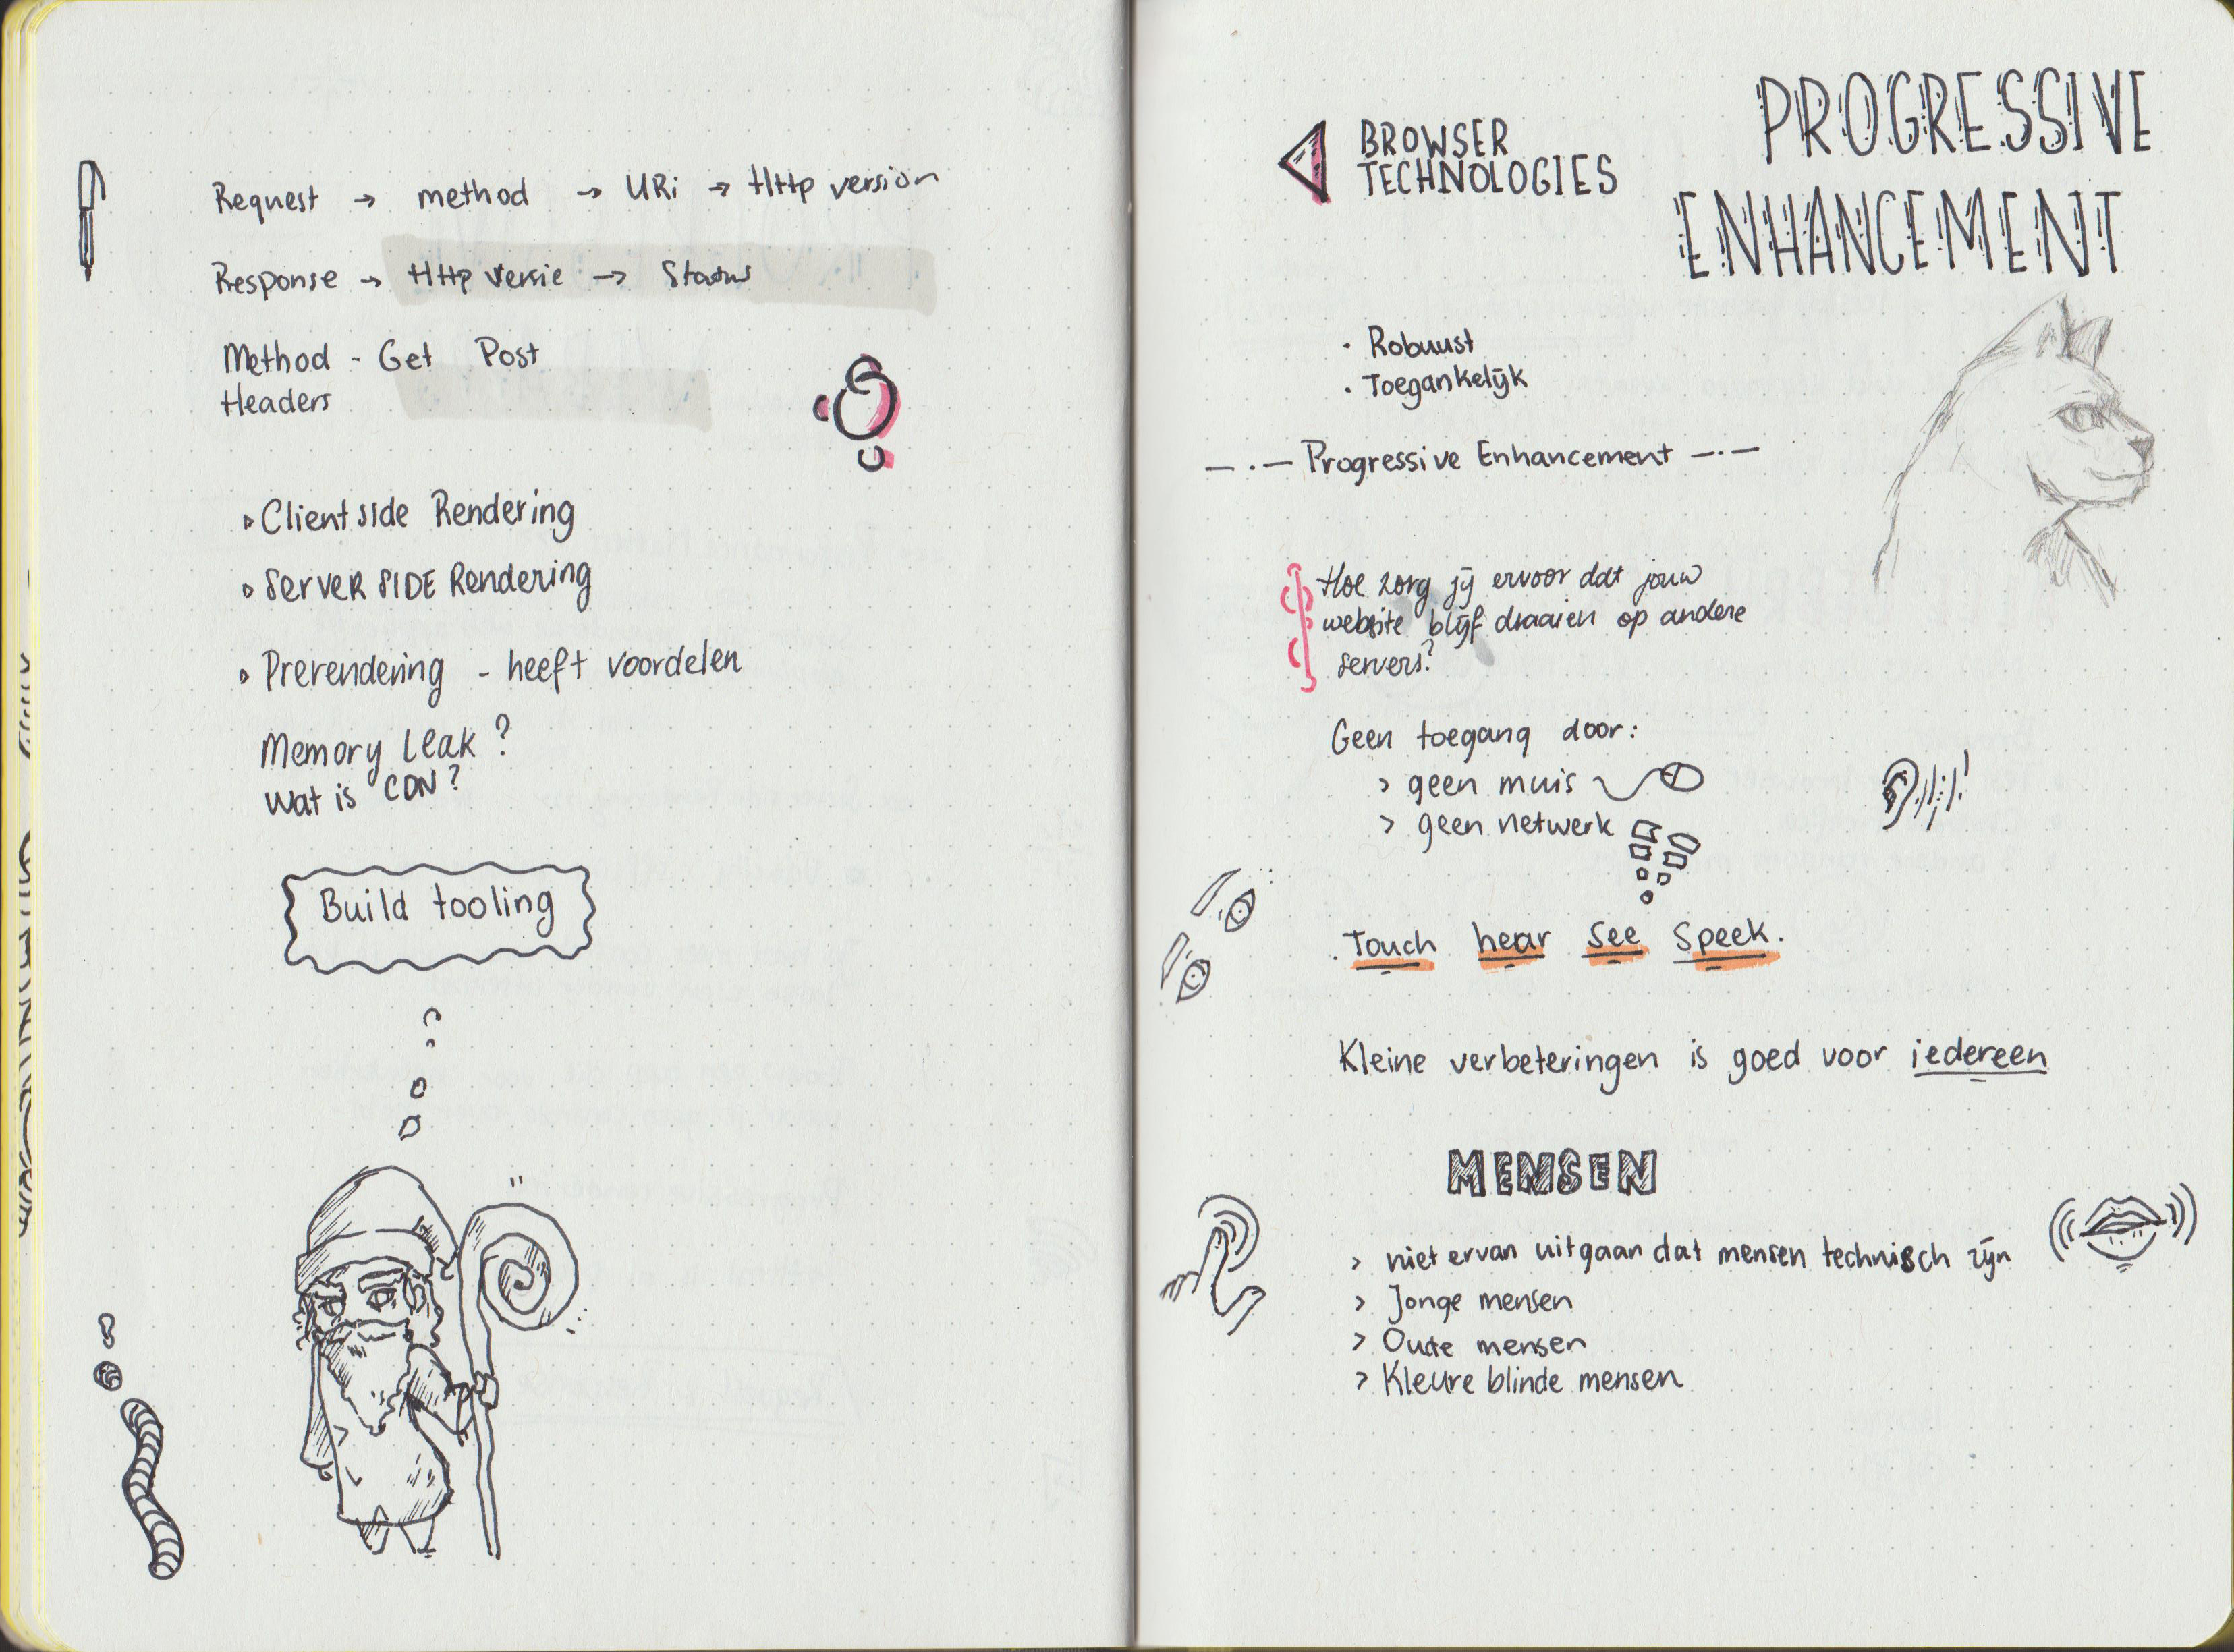 Request → method → URi → Http version
Response → Http versie → Status
Method - Get Post
Headers
Clientside Rendering
Server SIDE Rendering
Prerendering - heeft voordelen
Memory leak?
wat is CDN?
Build tooling
PROGRESSIVE
ENHANCEMENT
BROWSER
TECHNOLOGIES
• Robuust
• Toegankelijk
— · — Progressive Enhancement — · —
Hoe zorg jij ervoor dat jouw
website blijf draaien op andere
servers?
Geen toegang door:
> geen muis
> geen netwerk
. Touch hear See Speek.
Kleine verbeteringen is goed voor iedereen
MENSEN
> niet ervan uitgaan dat mensen technisch zijn
> Jonge mensen
> Oude mensen
> Kleure blinde mensen